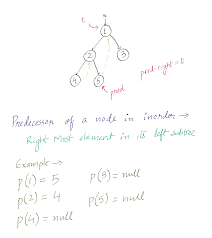 t
1
2
3
4
5
pred
pred→right = t
Predecessor of a node in inorder →
Right Most element in its left subtree
Example →
p(1) = 5
p(3) = null
p(2) = 4
p(5) = null
p(4) = null